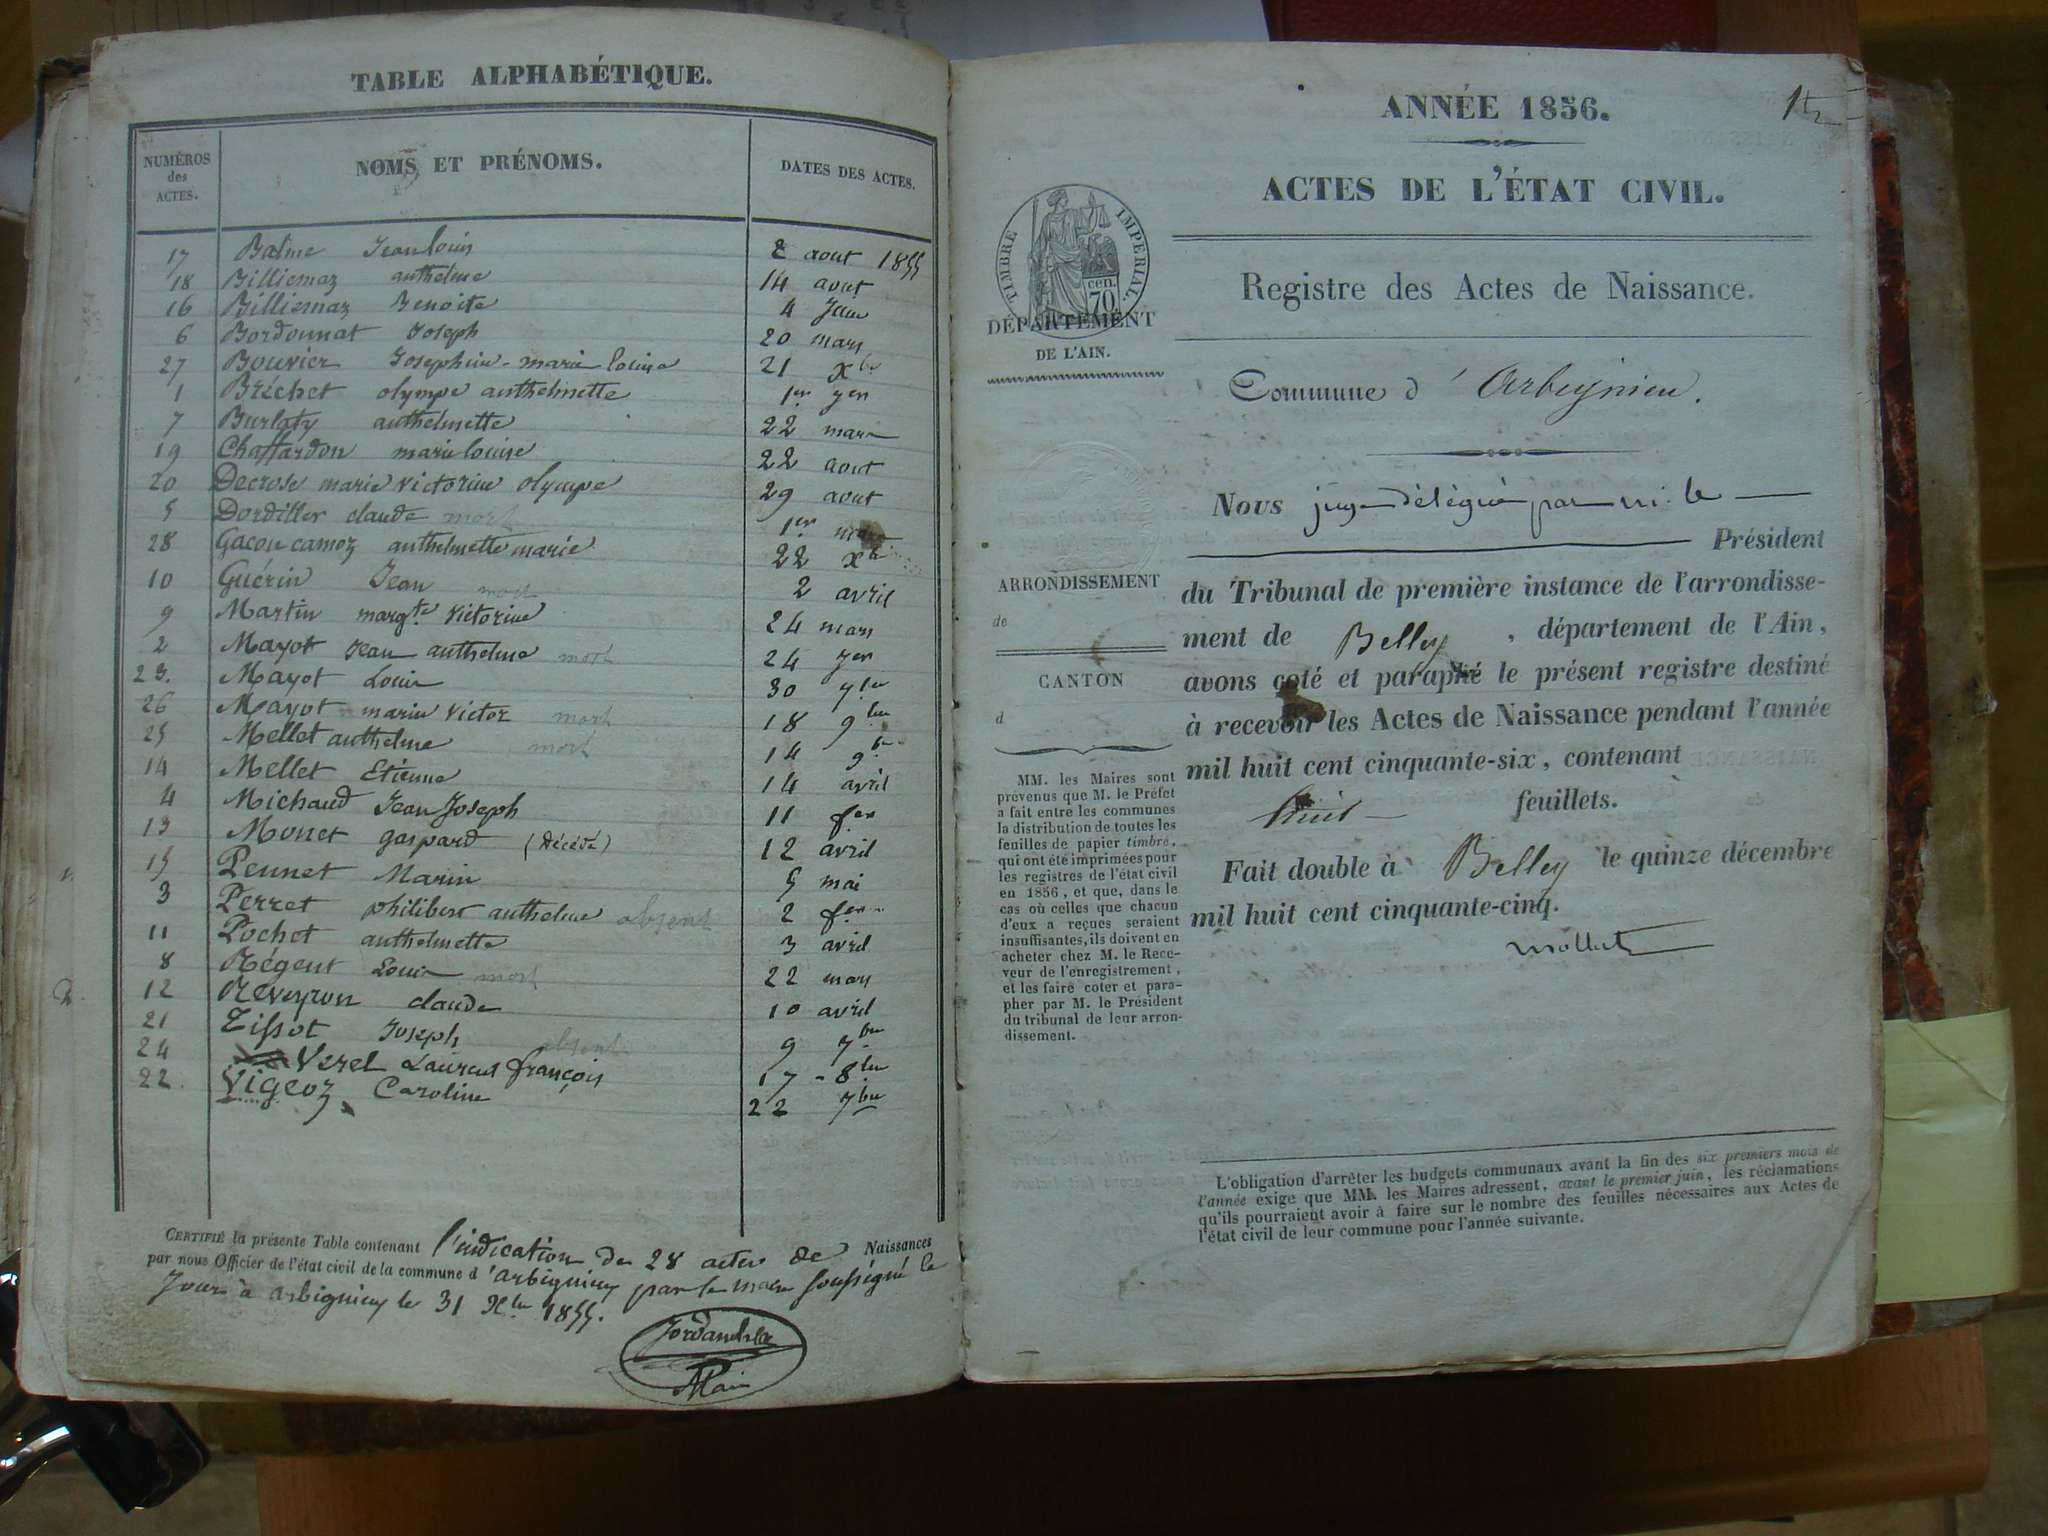 TABLE ALPHABÉTIQUE.
NUMÉROS des ACTES. NOMS ET PRÉNOMS. DATES DES ACTES.
17 Balme Jean louis 2 aout 1855
18 Billiemaz anthelme 14 aout
16 Billiemaz Benoite 4 Juin
6 Bordonnat Joseph 20 mars
27 Bouvier Josephine-marie louise 21 Xbre
1 Bréchet olympe anthelmette 1er Jer
7 Burlaty anthelmette 22 mars
19 Chaffardon marie louise 22 aout
20 Decrose marie victorine olympe 29 aout
5 Dordiller claude mort 1er mars
28 Gacon camoz anthelmette marie 22 Xbre
10 Guérin Jean mort 2 avril
9 Martin margte victorine 24 mars
2 Mayot Jean anthelme mort 24 Jer
23. Mayot Louis 30 7bre
26 Mayot marie victor mort 18 9bre
25 Mellet anthelme mort 14 9bre
14 Mellet Etienne 14 avril
4 Michaud Jean Joseph 11 fer
13 Monet gaspard (décédé) 12 avril
15 Pennet Marin 5 mai
3 Perret philibert anthelme absent 2 fer
11 Pochet anthelmette 3 avril
8 Régent Louis mort 22 mars
12 Reveyron claude 10 avril
21 Tissot Joseph absent 9 7bre
24 Verel Laurent françois 17 - 8bre
22. Vigeoz Caroline 22 7bre
CERTIFIÉ la présente Table contenant l'indication de 28 actes de Naissances
par nous Officier de l'état civil de la commune d'arbignieu par le maire soussigné le
Jours à arbignieu le 31 Xbre 1855.
ANNÉE 1856.
ACTES DE L'ÉTAT CIVIL.
TIMBRE IMPÉRIAL.
70 cen.
DÉPARTEMENT
DE L'AIN.
Registre des Actes de Naissance.
Commune d'Arbignieu.
ARRONDISSEMENT
de
CANTON
d
Nous juge délégué par m. le
Président
du Tribunal de première instance de l'arrondisse-
ment de Belley, département de l'Ain,
avons coté et paraphé le présent registre destiné
à recevoir les Actes de Naissance pendant l'année
mil huit cent cinquante-six, contenant
huit feuillets.
Fait double à Belley le quinze décembre
mil huit cent cinquante-cinq.
MM. les Maires sont
prévenus que M. le Préfet
a fait entre les communes
la distribution de toutes les
feuilles de papier timbré,
qui ont été imprimées pour
les registres de l'état civil
en 1856, et que, dans le
cas où celles que chacun
d'eux a reçues seraient
insuffisantes, ils doivent en
acheter chez M. le Rece-
veur de l'enregistrement,
et les faire coter et para-
pher par M. le Président
du tribunal de leur arron-
dissement.
L'obligation d'arrêter les budgets communaux avant la fin des six premiers mois de
l'année exige que MM. les Maires adressent, avant le premier juin, les réclamations
qu'ils pourraient avoir à faire sur le nombre des feuilles nécessaires aux Actes de
l'état civil de leur commune pour l'année suivante.